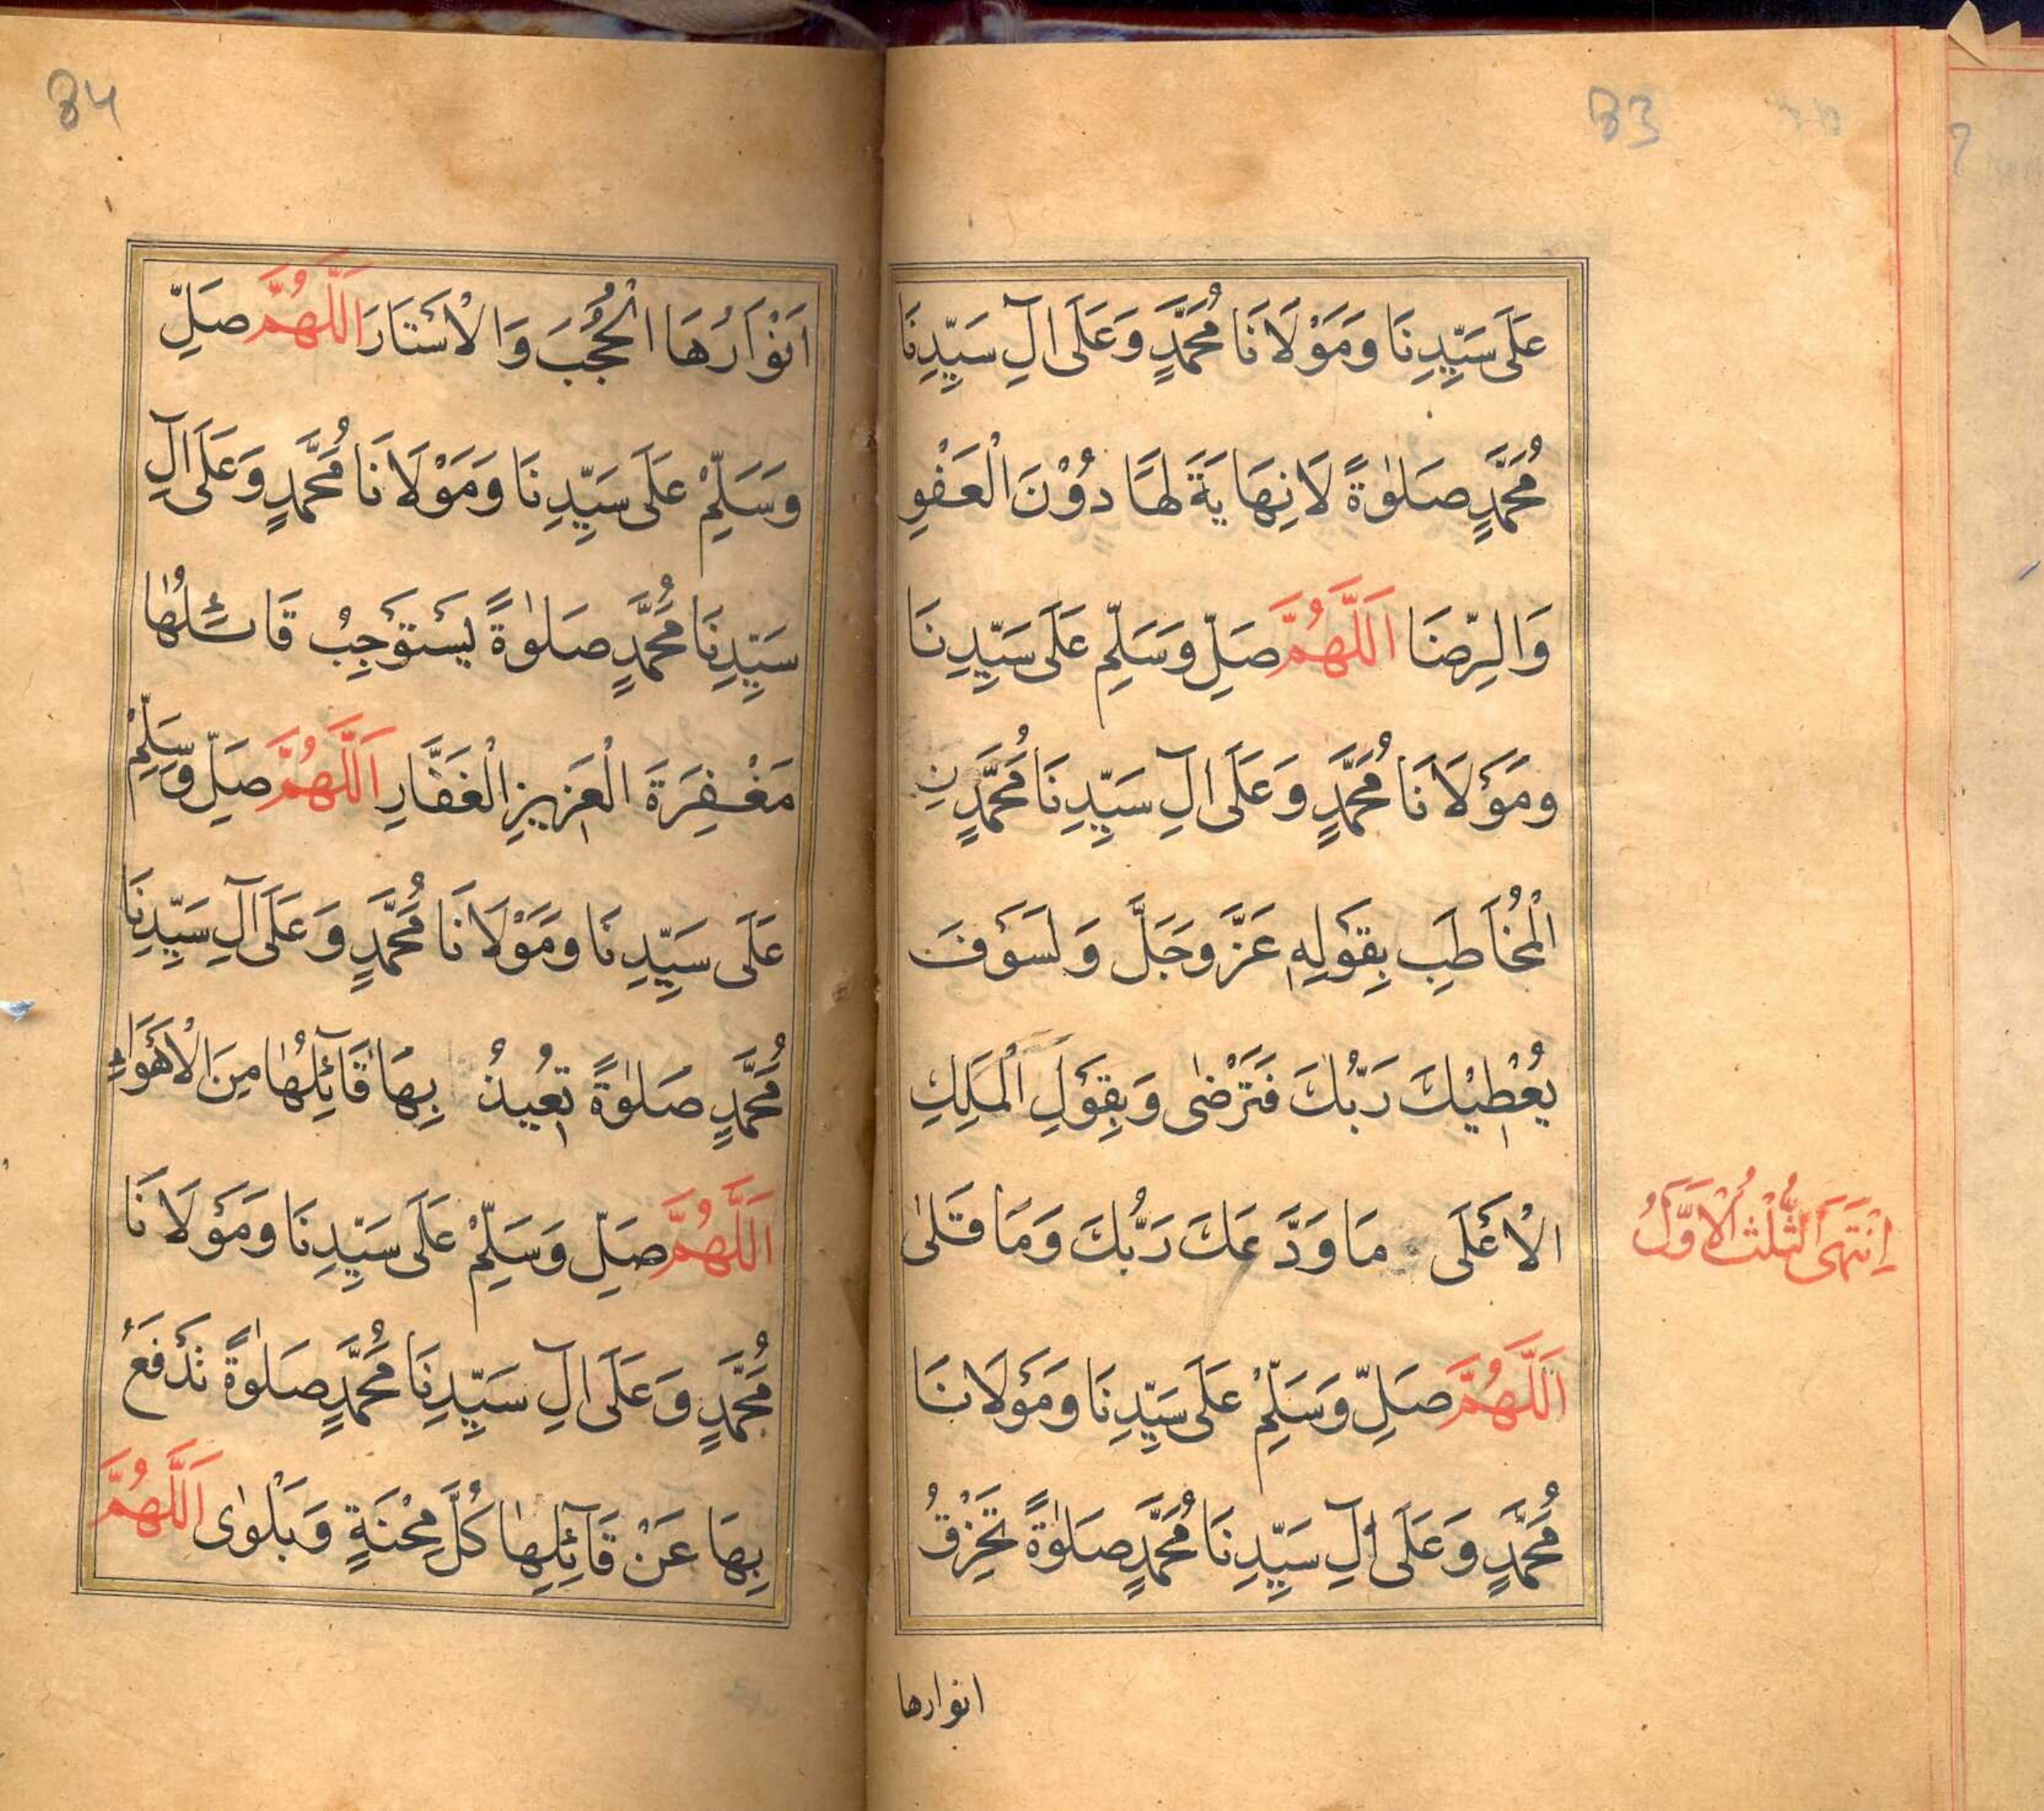 83
عَلَى سَيِّدِنَا وَمَوْلَانَا مُحَمَّدٍ وَعَلَى اٰلِ سَيِّدِنَا
مُحَمَّدٍ صَلٰوةً لَانِهَايَةَ لَهَا دُوْنَ الْعَفْوِ
وَالرِّضَا اَللّٰهُمَّ صَلِّ وَسَلِّمْ عَلَى سَيِّدِنَا
وَمَوْلَانَا مُحَمَّدٍ وَعَلَى اٰلِ سَيِّدِنَا مُحَمَّدٍ نِ
الْمُخَاطَبِ بِقَوْلِهٖ عَزَّ وَجَلَّ وَلَسَوْفَ
يُعْطِيْكَ رَبُّكَ فَتَرْضٰى وَبِقَوْلِ الْمَلِكِ
الْاَعْلَى مَا وَدَّعَكَ رَبُّكَ وَمَا قَلٰى
انْتَهَى الثُّلُثُ الْاَوَّلُ
اَللّٰهُمَّ صَلِّ وَسَلِّمْ عَلَى سَيِّدِنَا وَمَوْلَانَا
مُحَمَّدٍ وَعَلَى اٰلِ سَيِّدِنَا مُحَمَّدٍ صَلٰوةً تَخْرِقُ
انوارها
84
اَنْوَارُهَا الْحُجُبَ وَالْاَسْتَارَ اَللّٰهُمَّ صَلِّ
وَسَلِّمْ عَلَى سَيِّدِنَا وَمَوْلَانَا مُحَمَّدٍ وَعَلَى اٰلِ
سَيِّدِنَا مُحَمَّدٍ صَلٰوةً يَسْتَوْجِبُ قَائِلُهَا
مَغْفِرَةَ الْعَزِيزِ الْغَفَّارِ اَللّٰهُمَّ صَلِّ وَسَلِّمْ
عَلَى سَيِّدِنَا وَمَوْلَانَا مُحَمَّدٍ وَعَلَى اٰلِ سَيِّدِنَا
مُحَمَّدٍ صَلٰوةً تُعِيذُ بِهَا قَآئِلَهَا مِنَ الْاَهْوَاءِ
اَللّٰهُمَّ صَلِّ وَسَلِّمْ عَلَى سَيِّدِنَا وَمَوْلَانَا
مُحَمَّدٍ وَعَلَى اٰلِ سَيِّدِنَا مُحَمَّدٍ صَلٰوةً تَدْفَعُ
بِهَا عَنْ قَآئِلِهَا كُلَّ مِحْنَةٍ وَبَلْوٰى اَللّٰهُمَّ